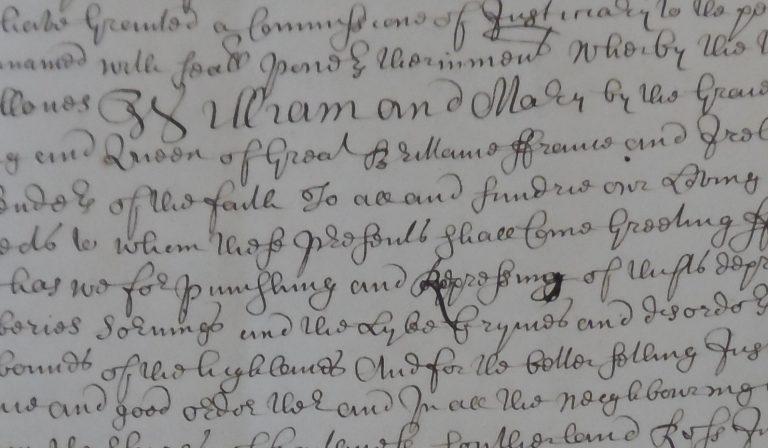 have Granted a Commissione of Justiciary to the pe
named with full power therinment wherby the
llowes William and Mary by the Grace
g and Queen of Great Brittaine ffrance and Irel
ender of the faith To all and sundrie our Loving
eds to whom these presents shall Come Greeting ff
has we for punishing and Repressing of thifts depr
beries Sornings and the Lyke Crymes and disorders
bounds of the highlands And for the better setling Jus
ue and good order ther and In all the neighbouring
Southerland Ross In